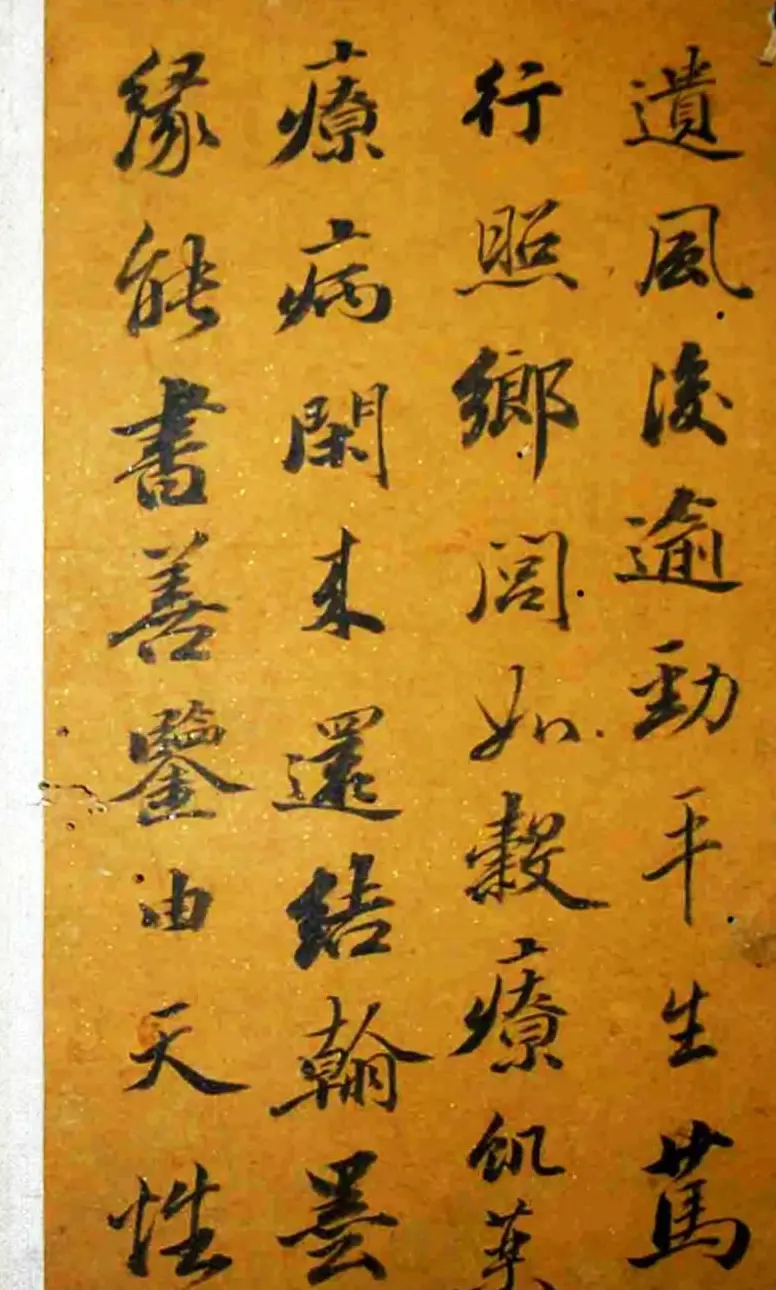 遺風後逾勁平生篤
行照鄉閭如穀療飢藥
療病閑來還結翰墨
緣能書善鑒由天性